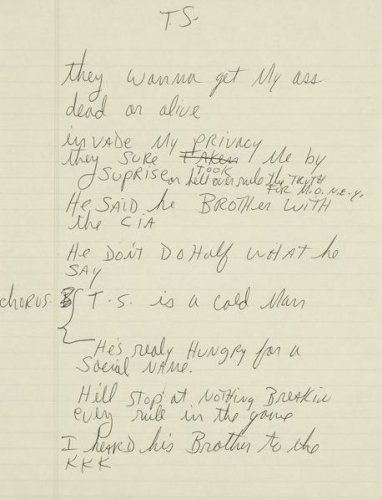 T.S.
they wanna get My ass
dead or alive
inVADE My PRIVACY
they SURE TAKEN TOOK Me by
SUPRISE or hell over rule the TRUTH
FOR M.O.N.E.Y.
He SAID he BROTHER WITH
the CIA
He DON'T DO Half WHAT he
SAY
chorus T.S. is a cold Man
He's realy HUNGRY for a
Social NAME.
He'll stop at NOTHING BREAKin
every rule in the game
I heard his Brother to the
KKK